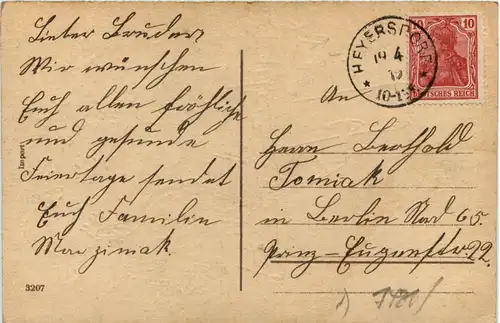 Lieber Bruder
Wir wünschen
Euch allen fröhliche
und gesunde
Feiertage sendet
Euch Familie
Marzimak.
Import
3207
HEYERSDORF
19 4
10-1
10
DEUTSCHES REICH
An
Herrn Berthold
Tomiak
in Berlin Nord 65.
Prinz-Eugenstr. 22.